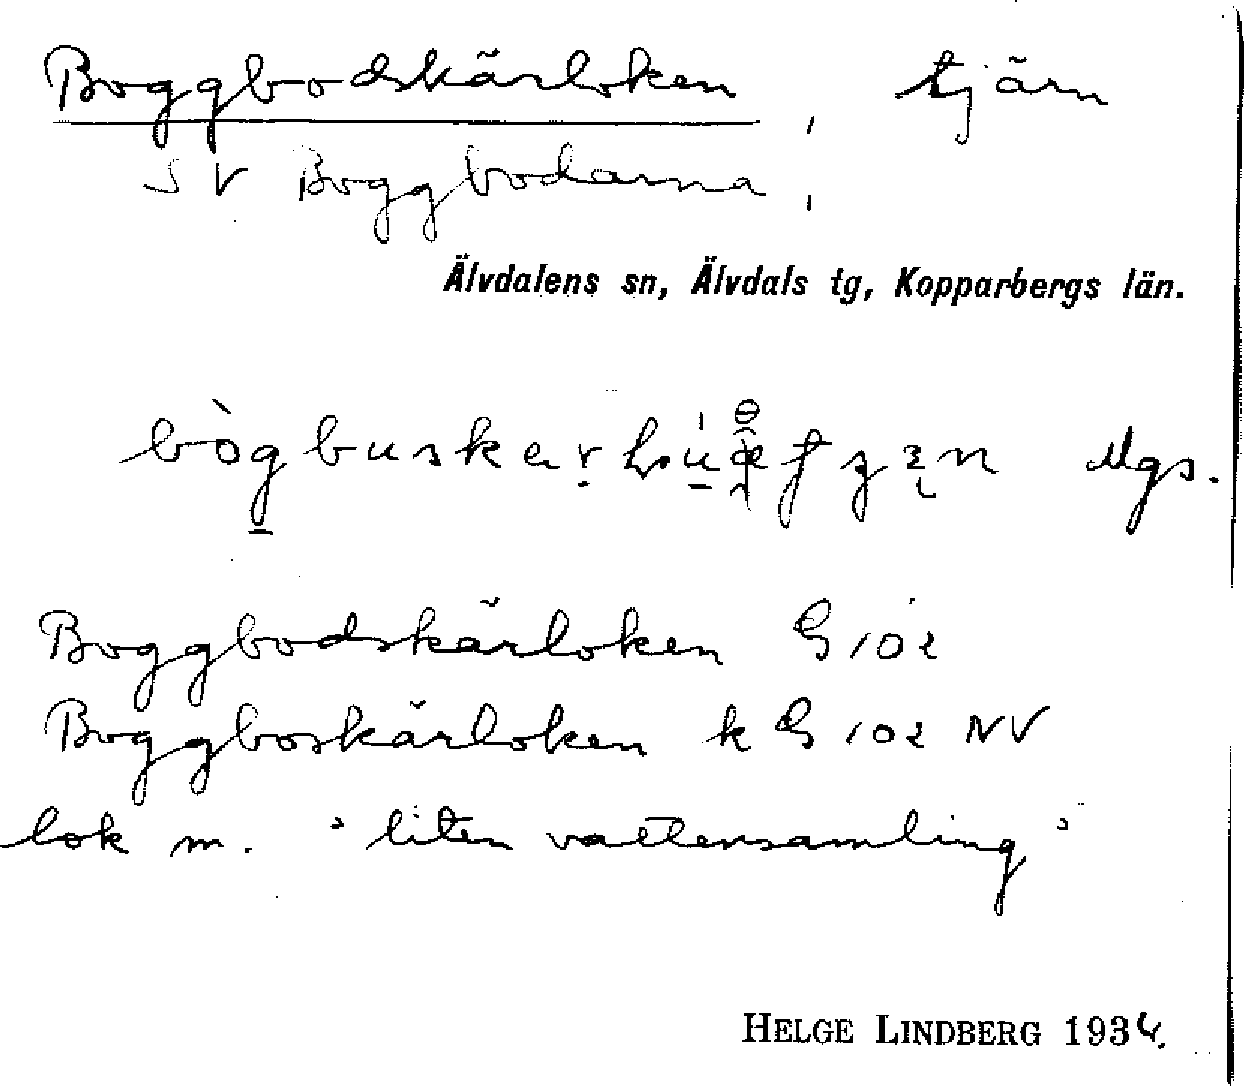 Boggbodskärloken, tjärn
SV Boggbodarna,
Älvdalens sn, Älvdals tg, Kopparbergs län.
Ugs.
Boggbodskärloken G 102
Boggboskärloken k G 102 NV
lok m. "liten vattensamling"
HELGE LINDBERG 1934.